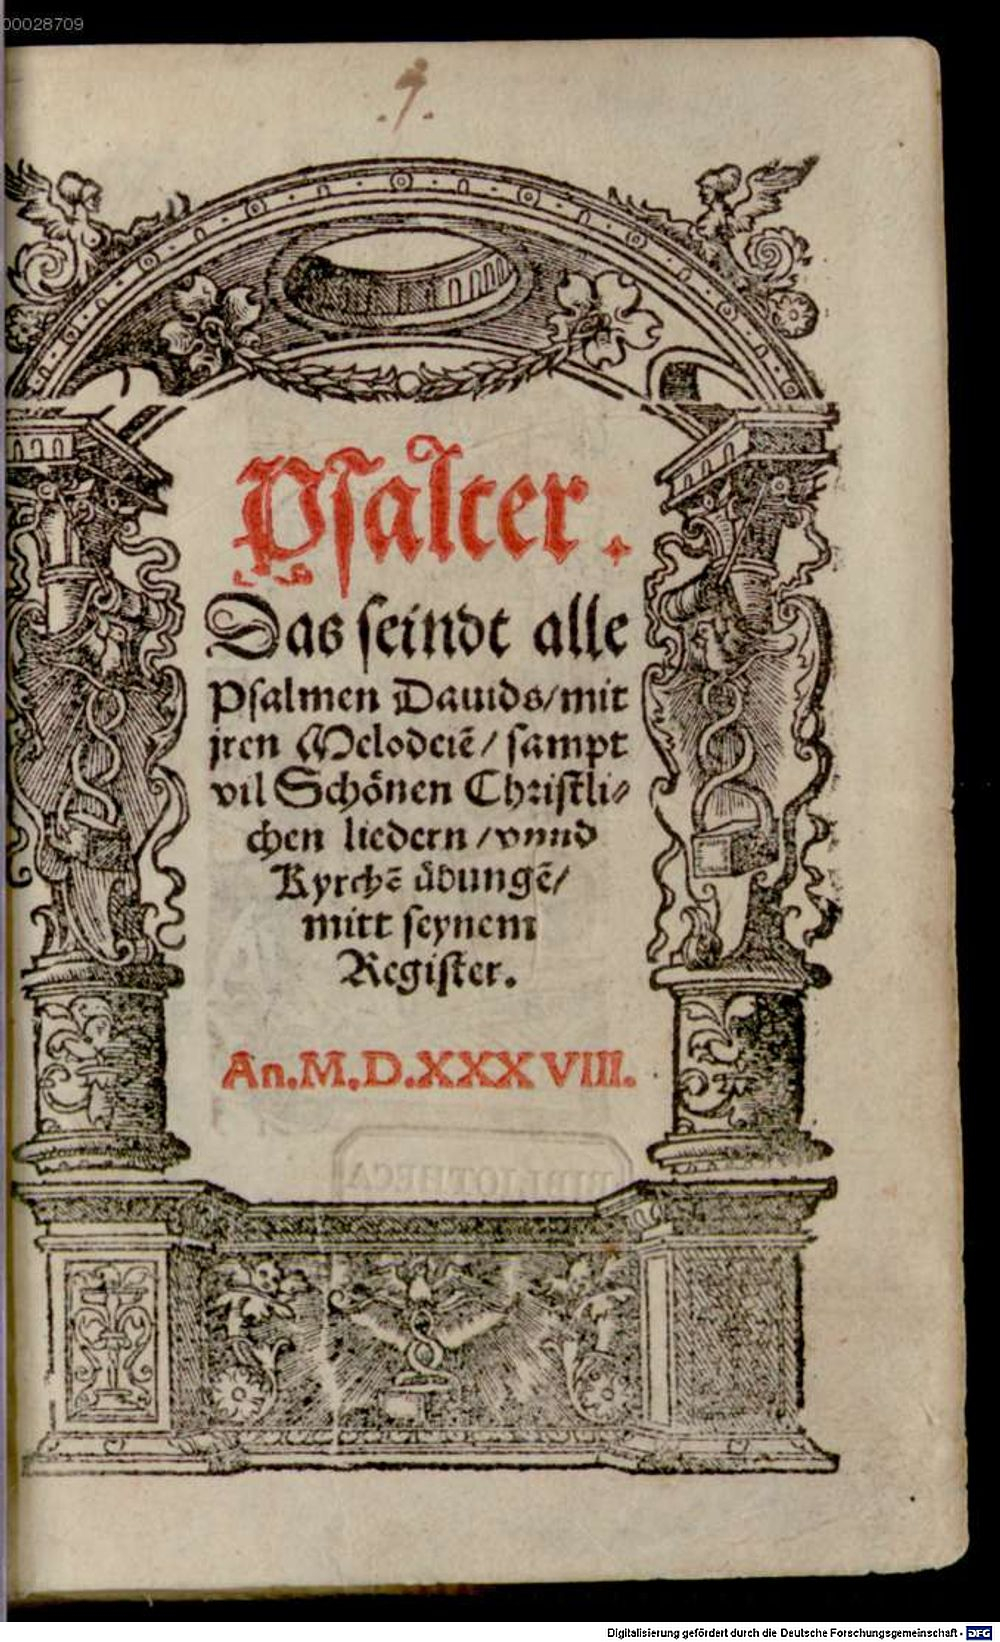 00028709
.7.
Psalter.
Das seindt alle
Psalmen Dauids/mit
jren Melodeiẽ/ sampt
vil Schönen Christli⸗
chen liedern/vnnd
Kyrchẽ übungẽ/
mitt seynem
Register.
An.M.D.XXXVIII.
BIBLIOTHECA
Digitalisierung gefördert durch die Deutsche Forschungsgemeinschaft - DFG